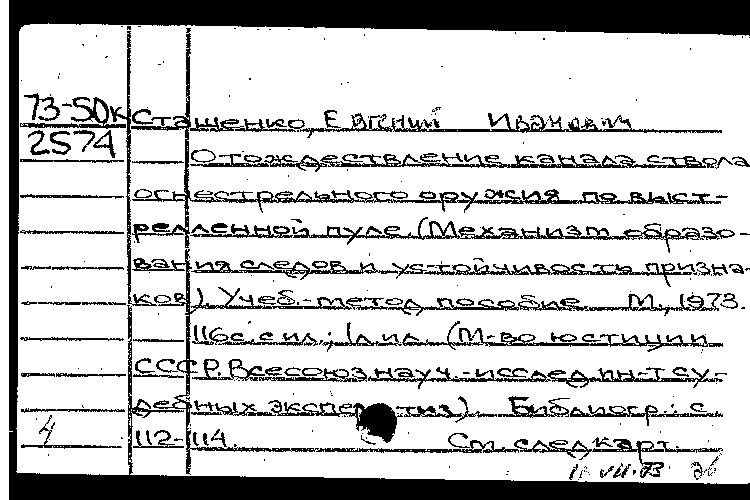 73-50к Сташенко, Евгений Иванович
2574
Отождествление канала ствола
огнестрельного оружия по выст-
релленной пуле. (Механизм образо-
вания следов и устойчивость призна-
ков). Учеб.-метод пособие М., 1973.
116с. с ил.; 1л ил. (М-во юстиции
СССР. Всесоюз науч.-исслед ин-т су-
дебных экспертиз). Библиогр.: с.
4 112-114. См. след карт.
VII-73